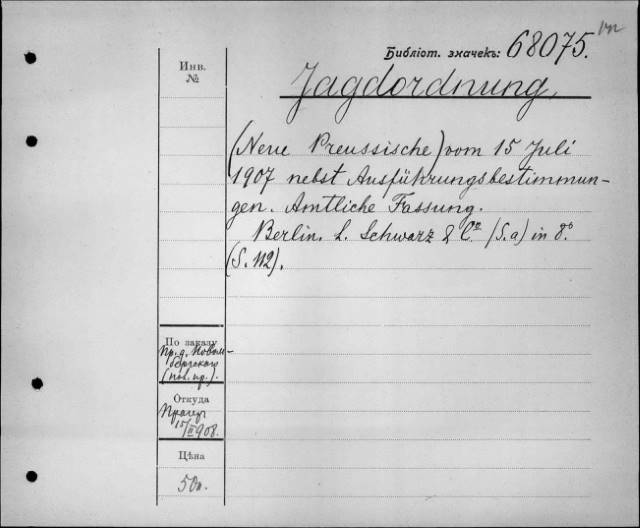 Библіот. значекъ: 68075.
Инв.
№
Jagdordnung,
(Neue Preussische) vom 15 Juli
1907 nebst Ausführungsbestimmun-
gen. Amtliche Fassung.
Berlin. L. Schwarz & Cº (S. a) in 8º.
(S. 112).
По заказу
Пр. д.
Откуда
Прагеръ
15/II 908.
Цѣна
50п.